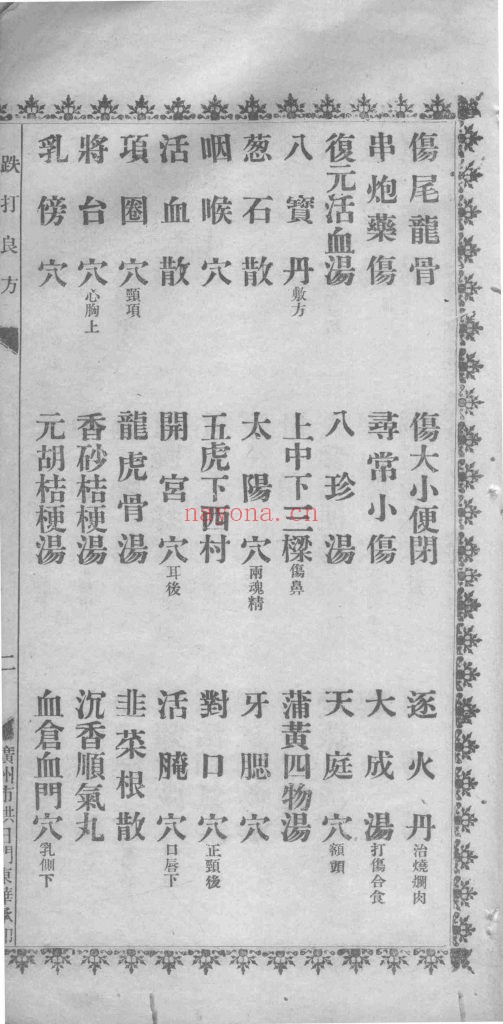 傷尾龍骨
傷大小便閉
逐火丹治燒爛肉
串炮藥傷
尋常小傷
大成湯打傷合食
復元活血湯
八珍湯
天庭穴額頭
八寶丹敷方
上中下三樑傷鼻
蒲黃四物湯
葱石散
太陽穴兩魂精
牙腮穴
咽喉穴
五虎下西村
對口穴正頸後
活血散
開宮穴耳後
活腌穴口唇下
項圈穴頸項
龍虎骨湯
韭菜根散
將台穴心胸上
香砂桔梗湯
沉香順氣丸
乳傍穴
元胡桔梗湯
血倉血門穴乳側下
跌打良方
二
廣州市拱日門東華承印
nayona.cn